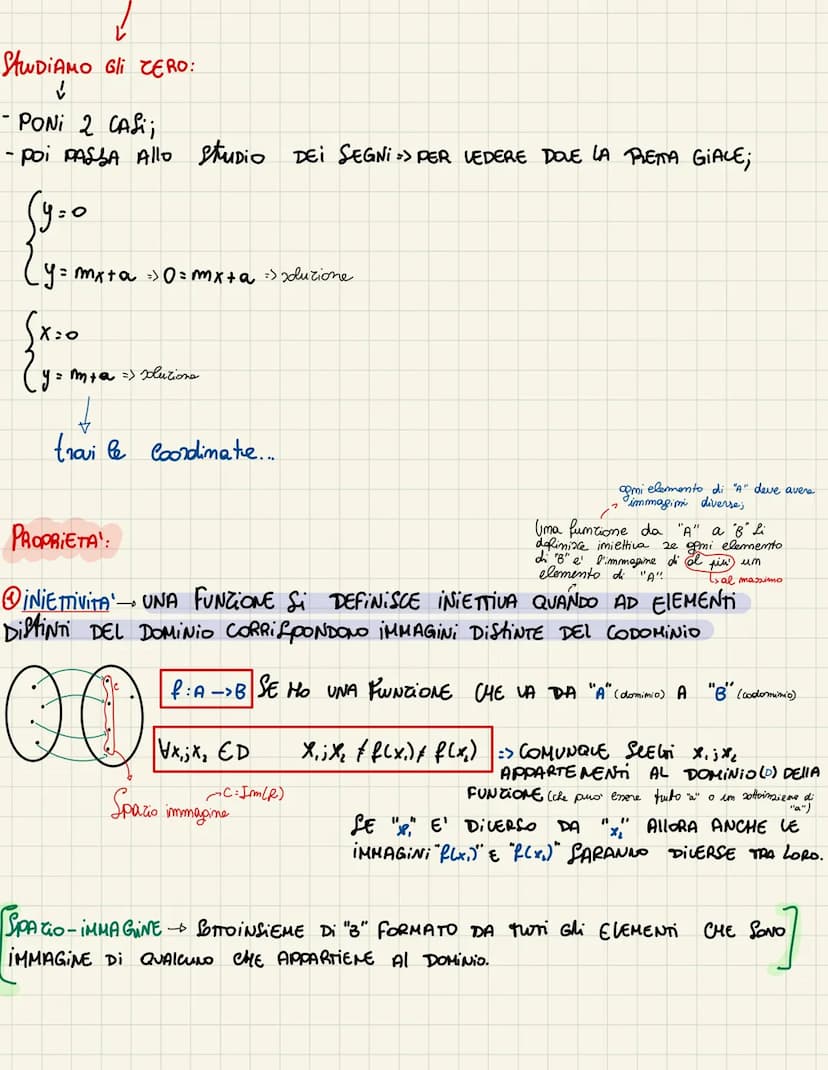 STUDIAMO Gli ZERO:
- PONI 2 CASi;
- poi PASSA Allo StuDio DEi SEGNi => PER VEDERE DOVE LA RETTA GIACE;
y = 0
y = mx+a => 0 = mx+a => soluzione
x = 0
y = m+a => soluzione
trovi le coordinate...
ogni elemento di "A" deve avere
immagini diverse;
PROPRiETA':
Una funzione da "A" a "B" si
definisce iniettiva se ogni elemento
di "B" e' l'immagine di al piu' un
elemento di "A".
↳ al massimo
① iNiETTiViTA' → UNA FUNZIONE Si DEFiNiSCE iNiETTiVA QUANDO AD ElEMENTi
DiStiNTi DEL DOMiNiO CORRiSPONDONO iMMAGiNi DiStiNTE DEl CODOMiNiO
f: A -> B SE HO UNA FUNZIONE CHE VA DA "A" (dominio) A "B" (codominio)
c
∀x₁;x₂ ∈ D x₁;x₂ ≠ f(x₁) ≠ f(x₂) => COMUNQUE SCELTi x₁;x₂
APPARTENENTi AL DOMiNiO (D) DELLA
FUNZIONE (che puo' essere tutto "a" o un sottoinsieme di
"a")
C: Im(R)
Spazio immagine
SE "x₁" E' DiVERSO DA "x₂" AllORA ANCHE LE
iMMAGiNi "f(x₁)" E "f(x₂)" SARANNO DiVERSE TRA LORO.
SPAZiO-iMMAGiNE → SOTTOiNSiEME Di "B" FORMATO DA TUTTi Gli ElEMENTi CHE SONO
iMMAGiNE Di QUALCUNO CHE APPARTiENE Al DOMiNiO.